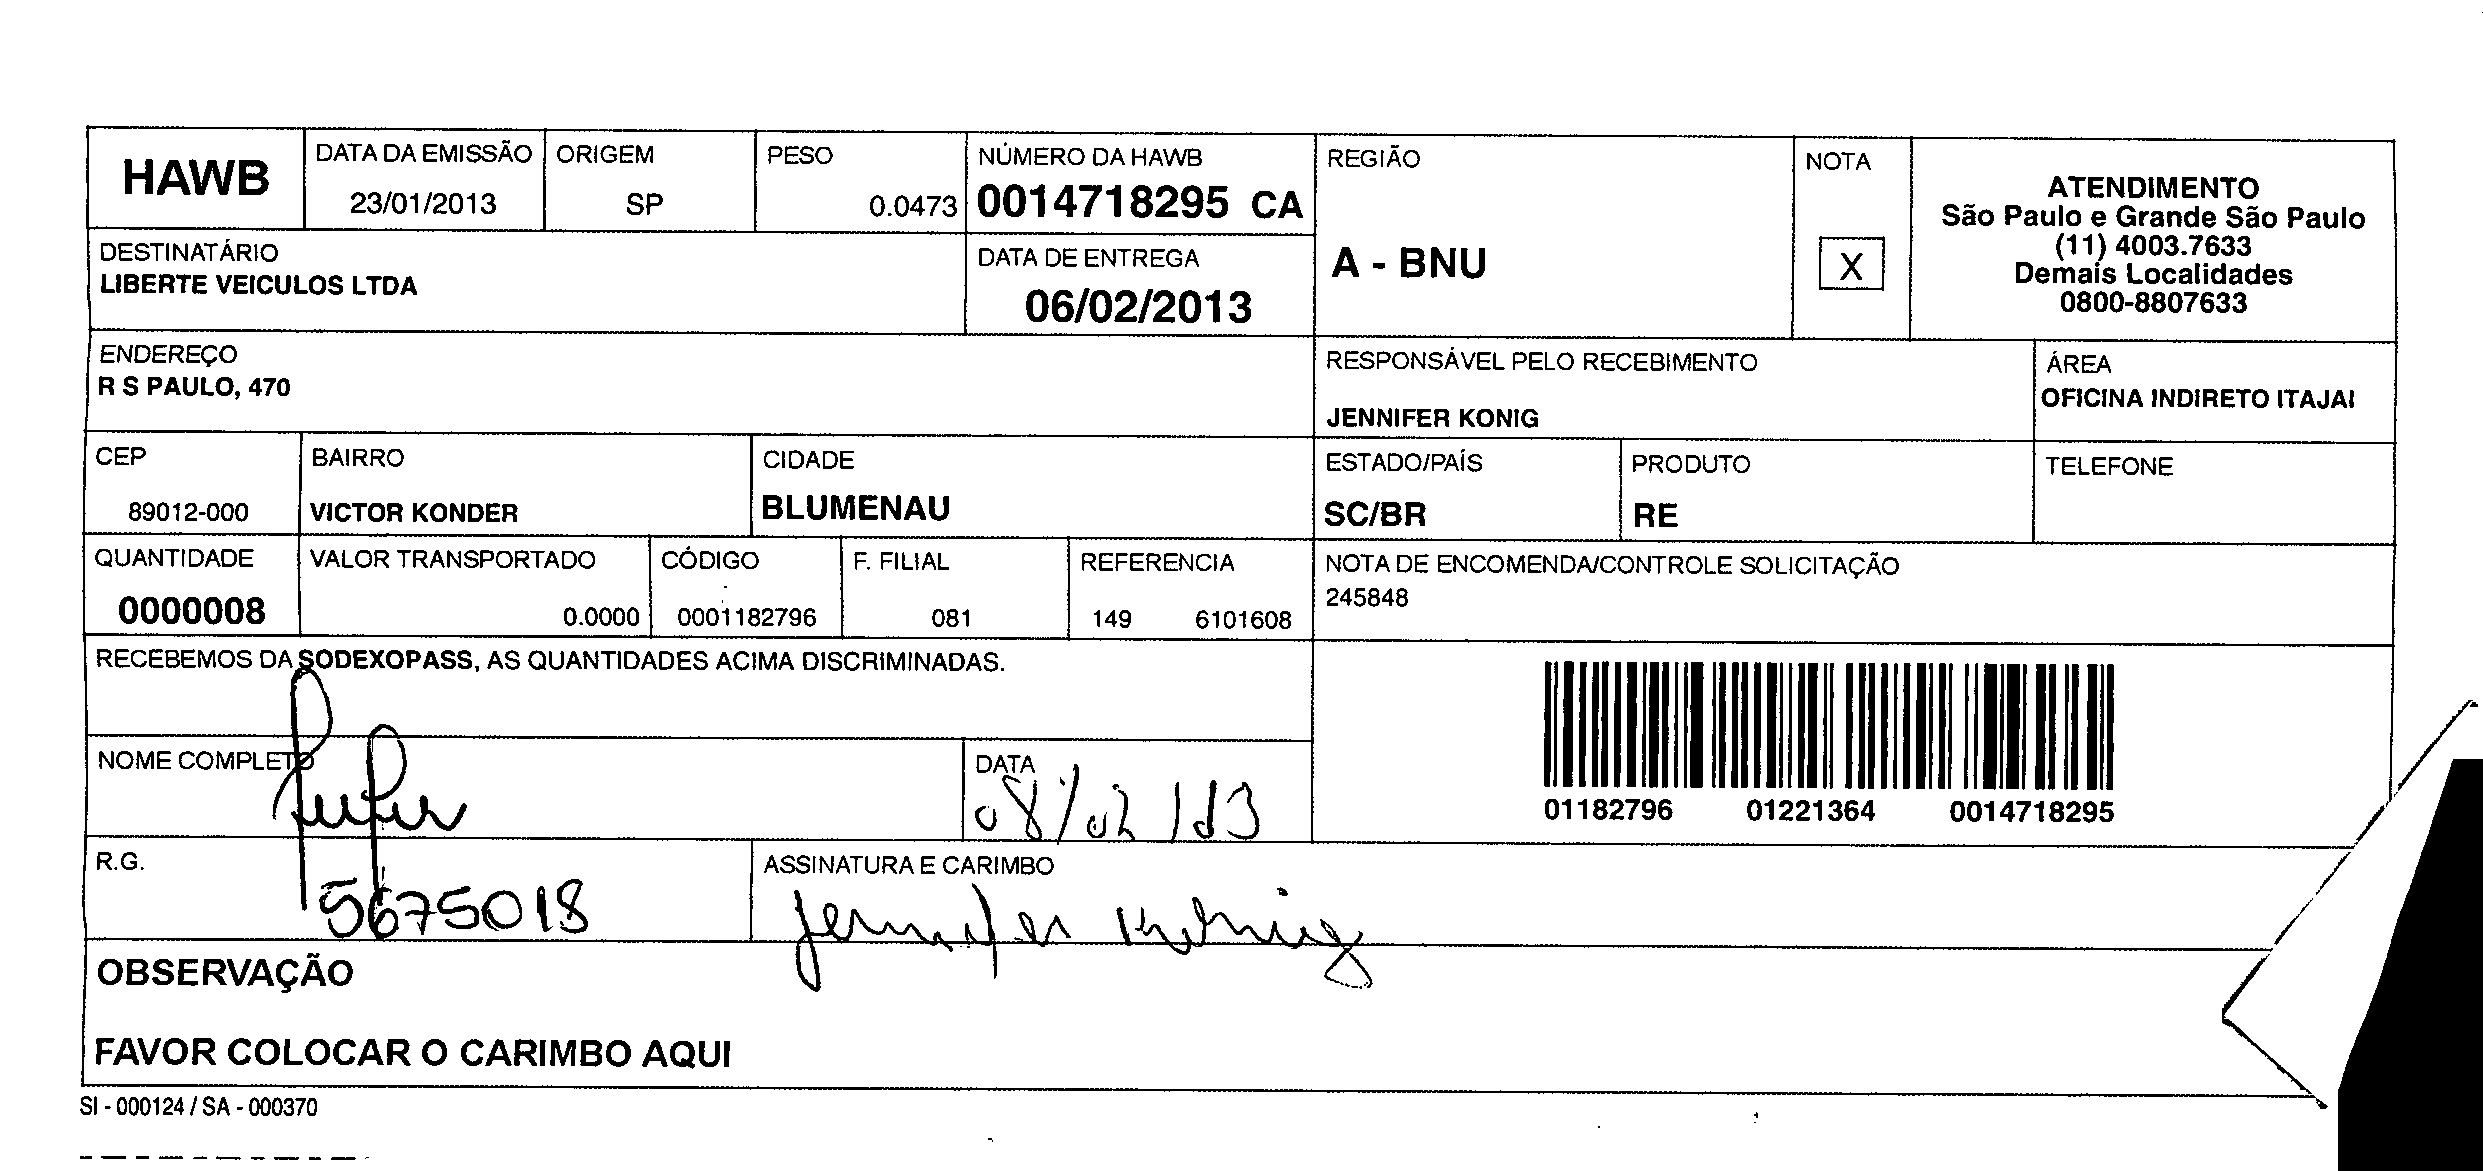 HAWB
DATA DA EMISSÃO
23/01/2013
ORIGEM
SP
PESO
0.0473
NÚMERO DA HAWB
0014718295 CA
REGIÃO
A - BNU
NOTA
X
ATENDIMENTO
São Paulo e Grande São Paulo
(11) 4003.7633
Demais Localidades
0800-8807633
DESTINATÁRIO
LIBERTE VEICULOS LTDA
DATA DE ENTREGA
06/02/2013
ENDEREÇO
R S PAULO, 470
RESPONSÁVEL PELO RECEBIMENTO
JENNIFER KONIG
ÁREA
OFICINA INDIRETO ITAJAI
CEP
89012-000
BAIRRO
VICTOR KONDER
CIDADE
BLUMENAU
ESTADO/PAÍS
SC/BR
PRODUTO
RE
TELEFONE
QUANTIDADE
0000008
VALOR TRANSPORTADO
0.0000
CÓDIGO
0001182796
F. FILIAL
081
REFERENCIA
149 6101608
NOTA DE ENCOMENDA/CONTROLE SOLICITAÇÃO
245848
RECEBEMOS DA SODEXOPASS, AS QUANTIDADES ACIMA DISCRIMINADAS.
01182796 01221364 0014718295
NOME COMPLETO
DATA
08/02/13
R.G.
5675018
ASSINATURA E CARIMBO
Jennifer König
OBSERVAÇÃO
FAVOR COLOCAR O CARIMBO AQUI
SI - 000124 / SA - 000370